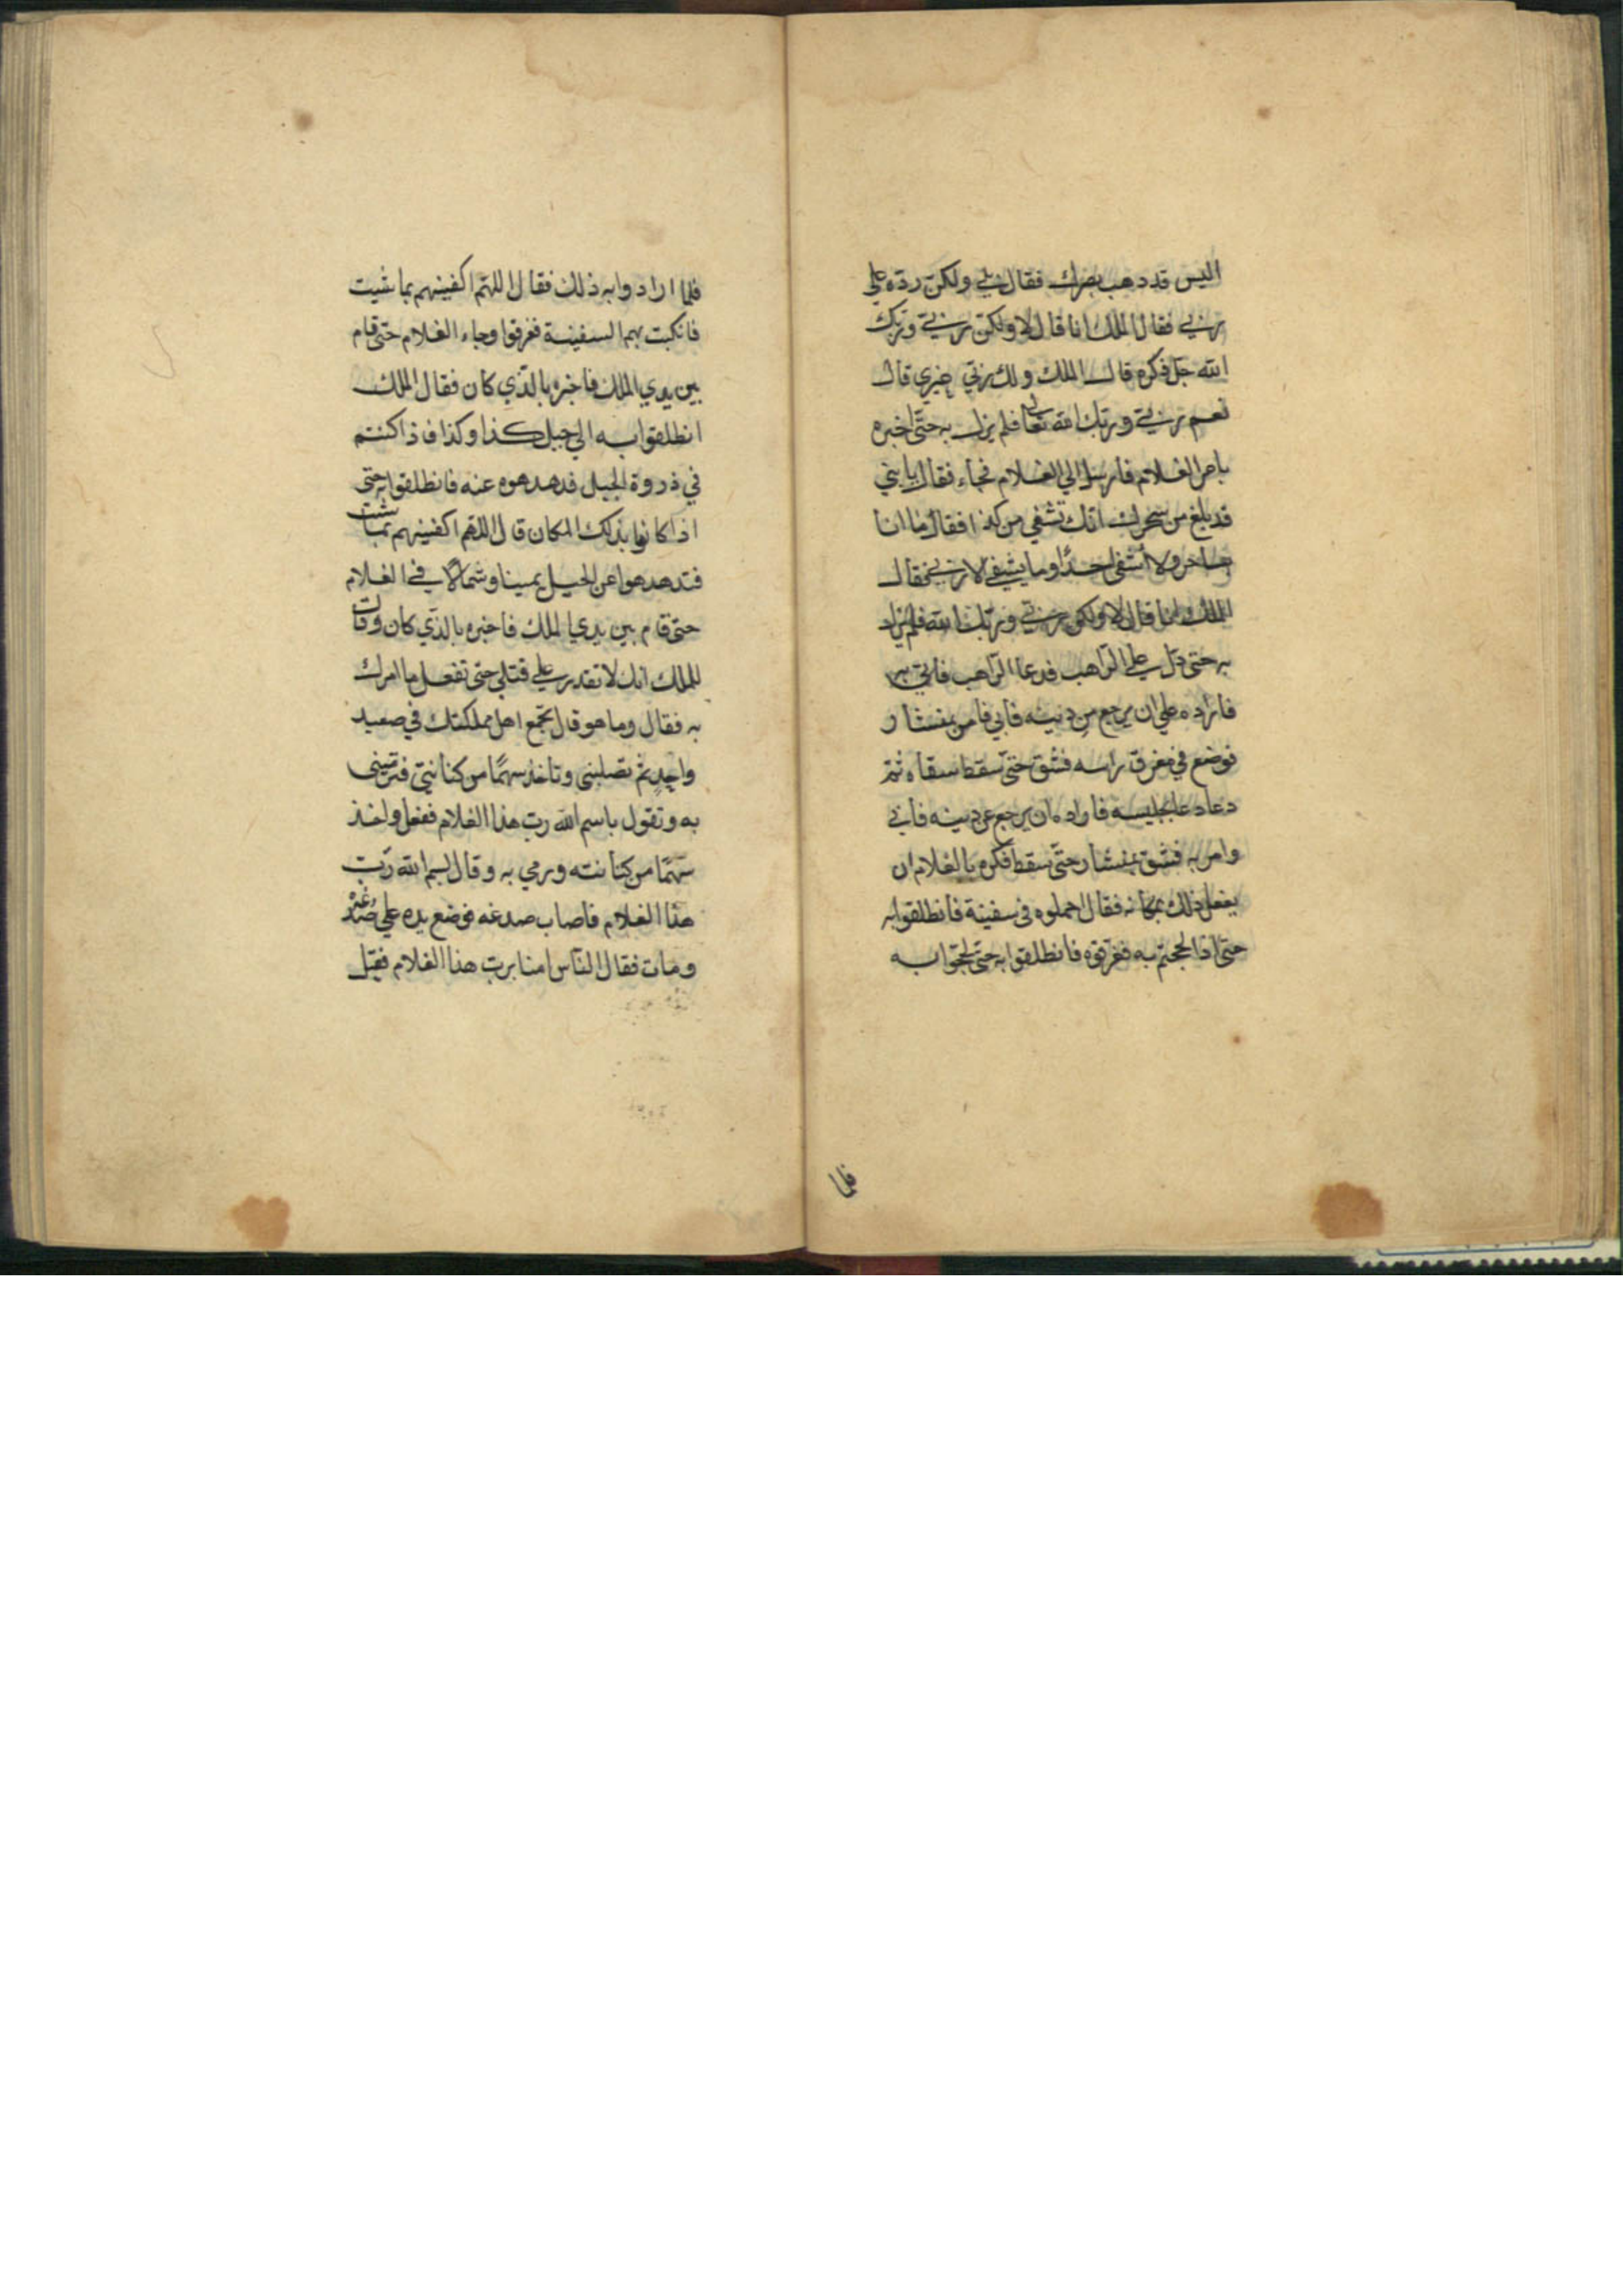 اليس قد ذهب بصرك فقال بلي ولكن رده علي
ربي فقال الملك انا قال لا ولكن ربي وربك
الله جل ذكره قال الملك ولك رب غيري قال
نعم ربي وربك الله تعالى فلم يزل به حتي اخبره
بامر الغلام فارسل الي الغلام فجاء فقال يا بني
قد بلغ من سحرك انك تشفي من كذا فقال ما انا
ساحر ولا اشفي احدًا وما يشفي الا ربي فقال
الملك انا قال لا ولكن ربي وربك الله فلم يزل
به حتي دل علي الراهب فدعا الراهب فاتي به
فاراده علي ان يرجع من دينه فابي فامر بمنشار
فوضع في مفرق راسه فشق حتي سقط شقاه ثم
دعا بجليسه فاراده ان يرجع عن دينه فابي
وامر به فشق بمنشار حتي سقط فكره بالغلام ان
يفعل ذلك مكانه فقال احملوه في سفينة فانطلقوا به
حتي اذا لججتم به فغرقوه فانطلقوا به حتي لججوا به
فلما
فلما ارادوا به ذلك فقال اللهم اكفينهم بما شيت
فانكبت بهم السفينة فغرقوا وجاء الغلام حتي قام
بين يدي الملك فاخبره بالذي كان فقال الملك
انطلقوا به الي جبل كذا وكذا فاذا كنتم
في ذروة الجبل فدهدهوه عنه فانطلقوا به حتي
اذا كانوا بذلك المكان قال اللهم اكفينهم بما شيت
فتدهدهوا عن الجبل يمينا وشمالًا في الغلام
حتي قام بين يدي الملك فاخبره بالذي كان وقال
للملك انك لا تقدر علي قتلي حتي تفعل ما امرك
به فقال وما هو قال تجمع اهل مملكتك في صعيد
واحدٍ ثم تصلبني وتاخذ سهمًا من كنانتي فترميني
به وتقول باسم الله رب هذا الغلام ففعل واخذ
سهمًا من كنانته ورمي به وقال بسم الله رب
هذا الغلام فاصاب صدغه فوضع يده علي صدغه
ومات فقال الناس امنا برب هذا الغلام فقيل